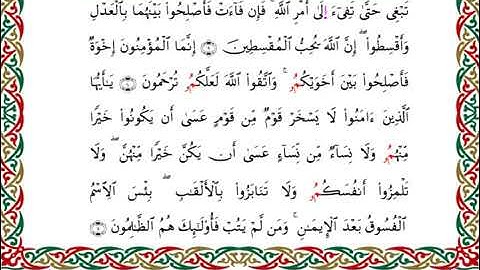 تَبْغِى حَتَّىٰ تَفِىٓءَ إِلَىٰٓ أَمْرِ ٱللَّهِ ۚ فَإِن فَآءَتْ فَأَصْلِحُوا۟ بَيْنَهُمَا بِٱلْعَدْلِ
وَأَقْسِطُوٓا۟ ۖ إِنَّ ٱللَّهَ يُحِبُّ ٱلْمُقْسِطِينَ ۝ إِنَّمَا ٱلْمُؤْمِنُونَ إِخْوَةٌ
فَأَصْلِحُوا۟ بَيْنَ أَخَوَيْكُمُۥ ۚ وَٱتَّقُوا۟ ٱللَّهَ لَعَلَّكُمُۥ تُرْحَمُونَ ۝ يَـٰٓأَيُّهَا
ٱلَّذِينَ ءَامَنُوا۟ لَا يَسْخَرْ قَوْمٌ مِّن قَوْمٍ عَسَىٰٓ أَن يَكُونُوا۟ خَيْرًا
مِّنْهُمُۥ وَلَا نِسَآءٌ مِّن نِّسَآءٍ عَسَىٰٓ أَن يَكُنَّ خَيْرًا مِّنْهُنَّ ۖ وَلَا
تَلْمِزُوٓا۟ أَنفُسَكُمُۥ وَلَا تَنَابَزُوا۟ بِٱلْأَلْقَـٰبِ ۖ بِئْسَ ٱلِٱسْمُ
ٱلْفُسُوقُ بَعْدَ ٱلْإِيمَـٰنِ ۚ وَمَن لَّمْ يَتُبْ فَأُو۟لَـٰٓئِكَ هُمُ ٱلظَّـٰلِمُونَ ۝